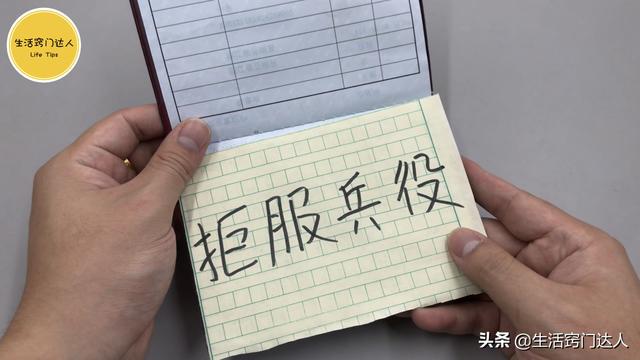 生活窍门达人
Life Tips
拒服兵役
头条 @生活窍门达人